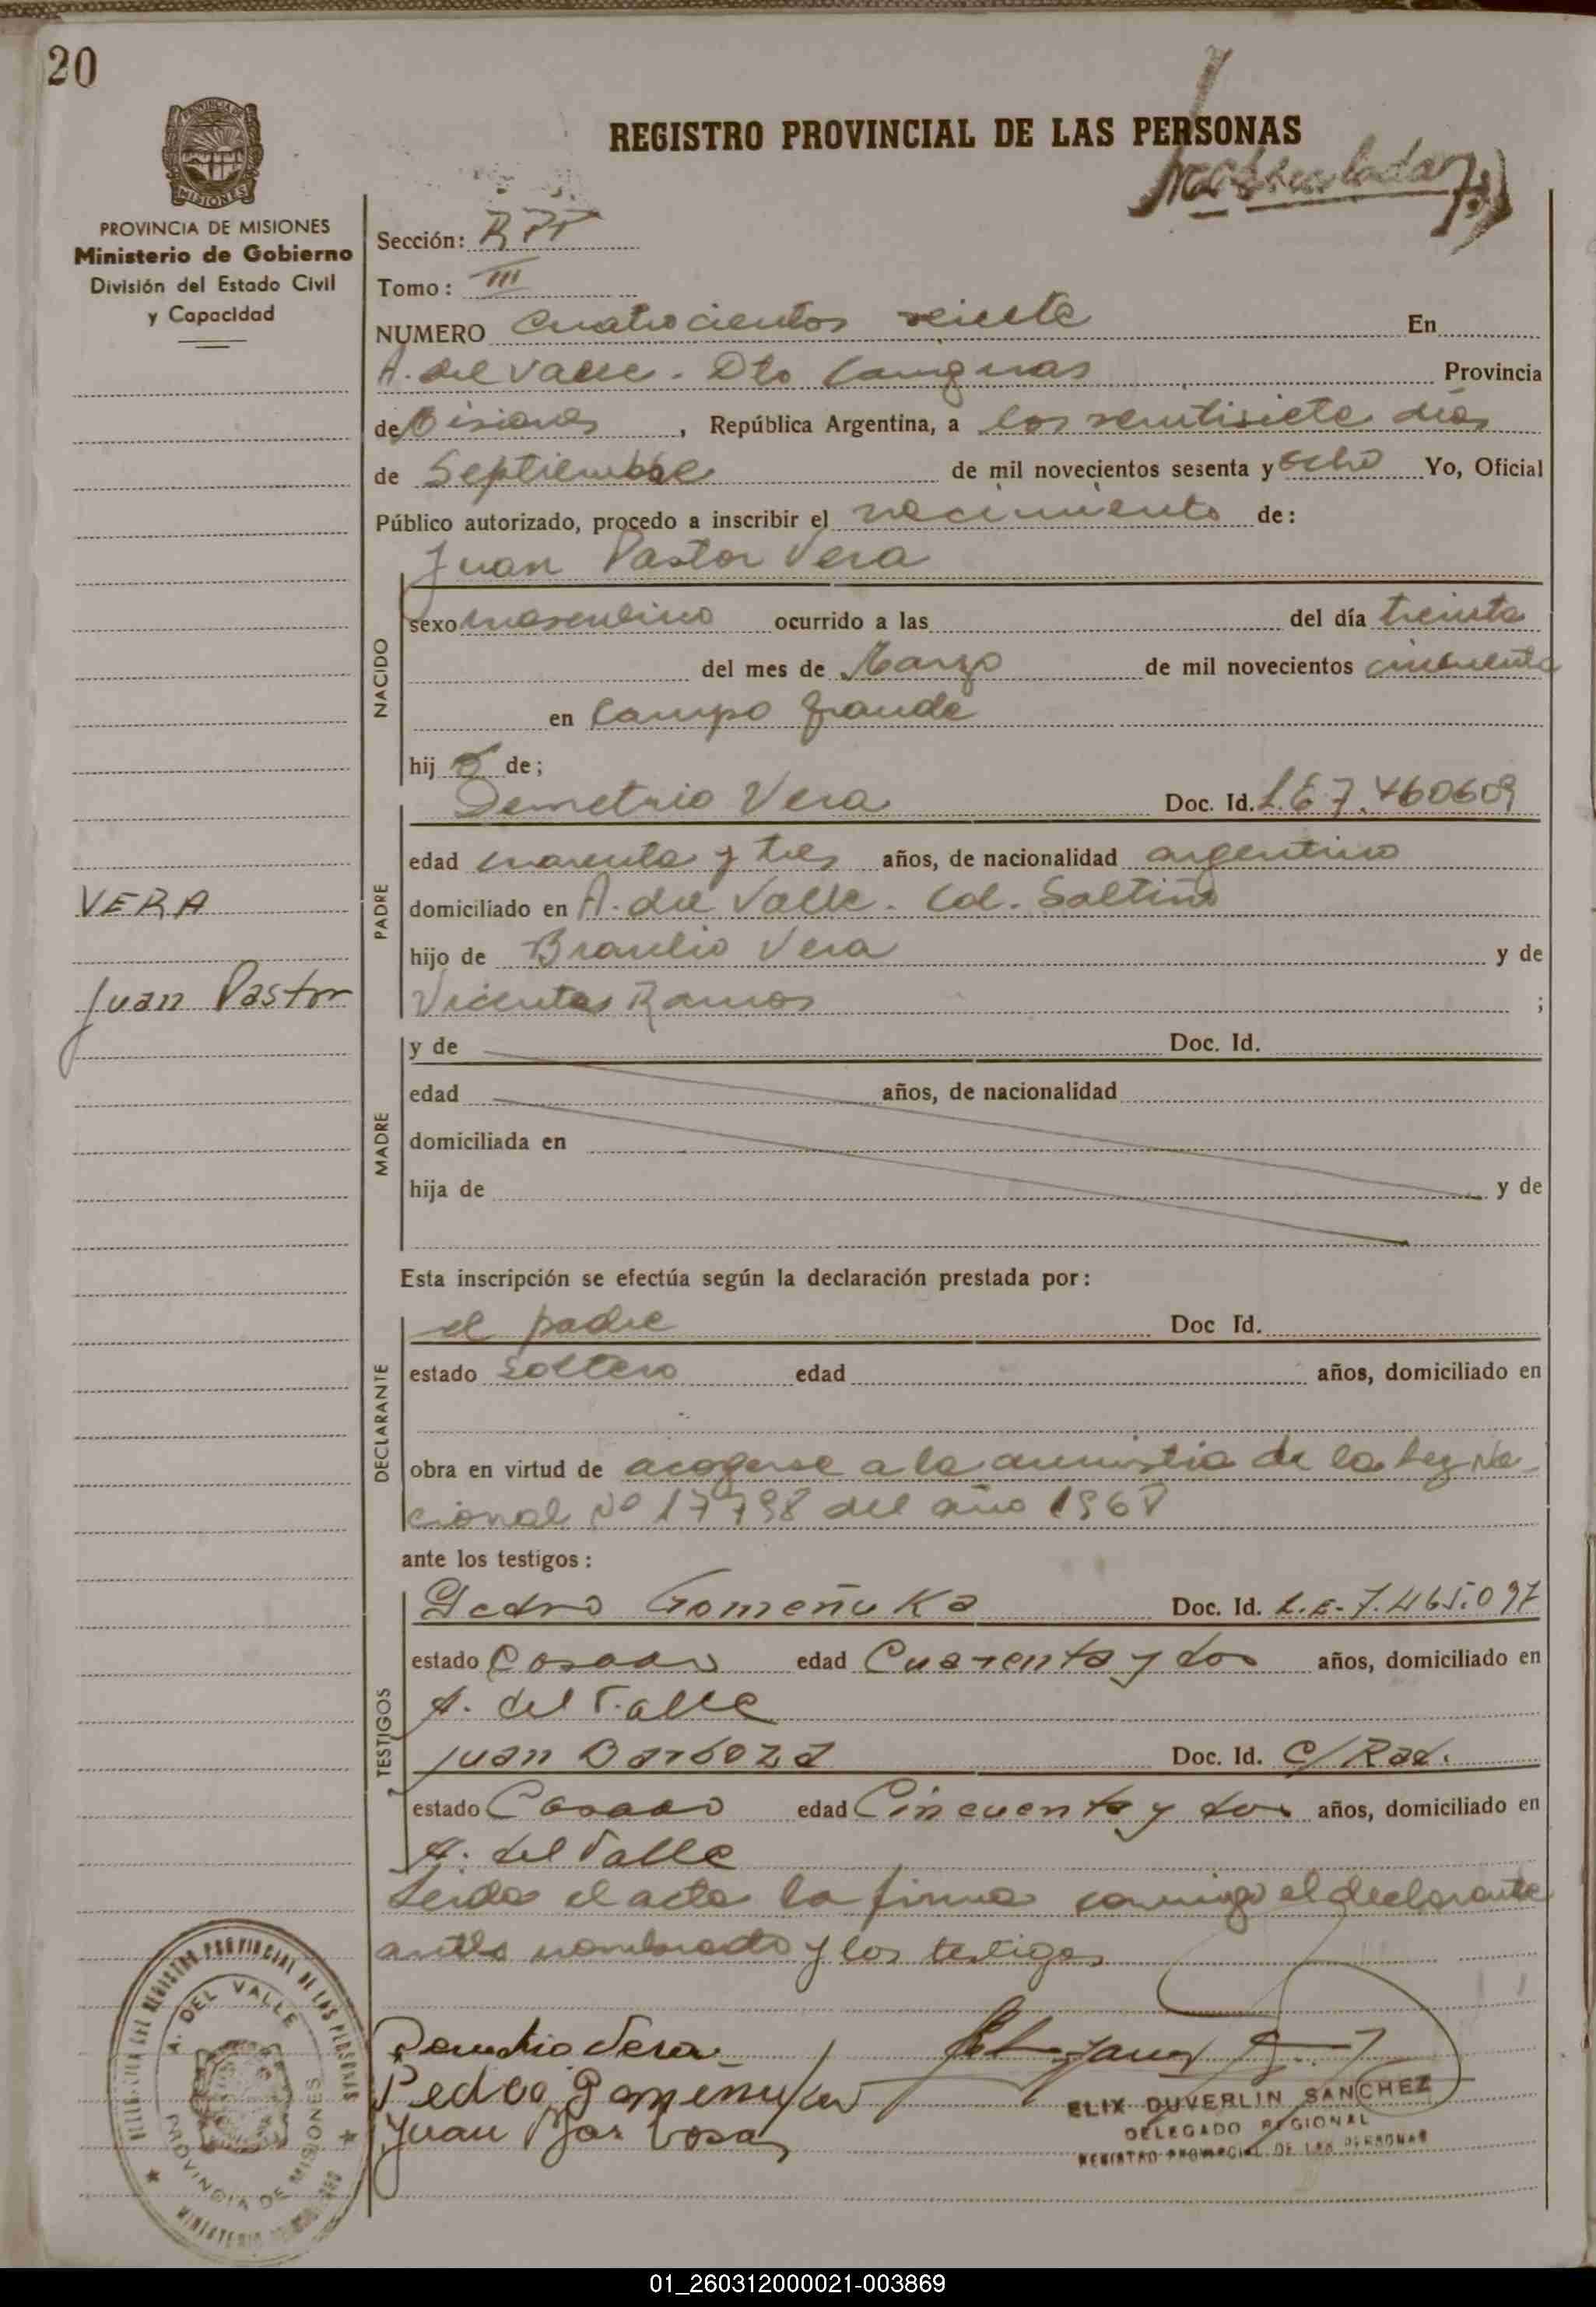 20
REGISTRO PROVINCIAL DE LAS PERSONAS
PROVINCIA DE MISIONES
Ministerio de Gobierno
División del Estado Civil
y Capacidad
Sección:
Tomo: III
NUMERO Cuatrocientos veinte En
A. del Valle - Dto Cainguas Provincia
de Misiones, República Argentina, a los veintisiete días
de Septiembre de mil novecientos sesenta y ocho Yo, Oficial
Público autorizado, procedo a inscribir el nacimiento de:
Juan Pastor Vera
NACIDO
sexo masculino ocurrido a las del día treinta
del mes de Marzo de mil novecientos cincuenta
en Campo Grande
hij o de;
PADRE
Demetrio Vera Doc. Id. L.E 7.460609
edad cuarenta y tres años, de nacionalidad argentino
domiciliado en A. del Valle. Col. Saltiño
hijo de Braulio Vera y de
Vicenta Ramos ;
VERA
Juan Pastor
MADRE
y de Doc. Id.
edad años, de nacionalidad
domiciliada en
hija de y de
Esta inscripción se efectúa según la declaración prestada por:
DECLARANTE
el padre Doc Id.
estado soltero edad años, domiciliado en
obra en virtud de acogerse a la amnistia de la Ley Na-
cional Nº 17798 del año 1968
ante los testigos:
TESTIGOS
Pedro Gomeñuka Doc. Id. L.E- 7.465.097
estado Casado edad Cuarenta y dos años, domiciliado en
A. del Valle
Juan Barboza Doc. Id. C/Rad.
estado Casado edad Cincuenta y dos años, domiciliado en
A. del Valle
Leida el acta la firma conmigo el declarante
antes nombrado y los testigos
Demetrio Vera
Pedro Gomeñuka
Juan Barboza
ELIX DUVERLIN SANCHEZ
DELEGADO REGIONAL
REGISTRO PROVINCIAL DE LAS PERSONAS
A. DEL VALLE
PROVINCIA DE MISIONES
01_260312000021-003869